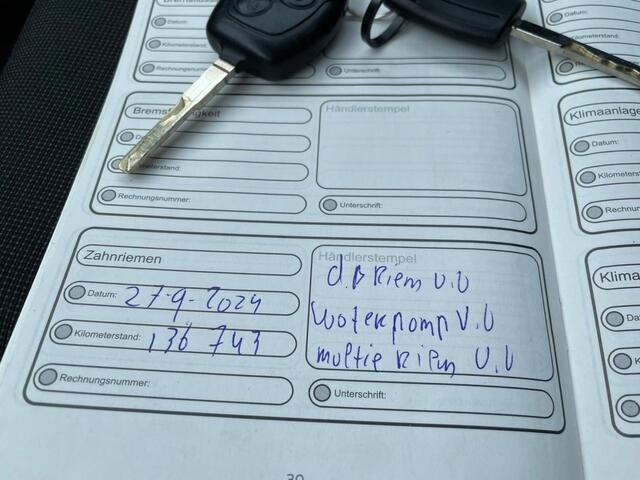 Datum:
Kilometerstand:
Rechnungsnummer:
Unterschrift:
Datum:
Händlerstempel
Rechnungsnummer:
Unterschrift:
Klimaanlage
Datum:
Rechnungs
Zahnriemen
Datum: 27-9-2024
Kilometerstand: 136 743
Rechnungsnummer:
Händlerstempel
d.B Riem V.V
Waterpomp V.V
multie Riem V.V
Unterschrift:
Klima
30